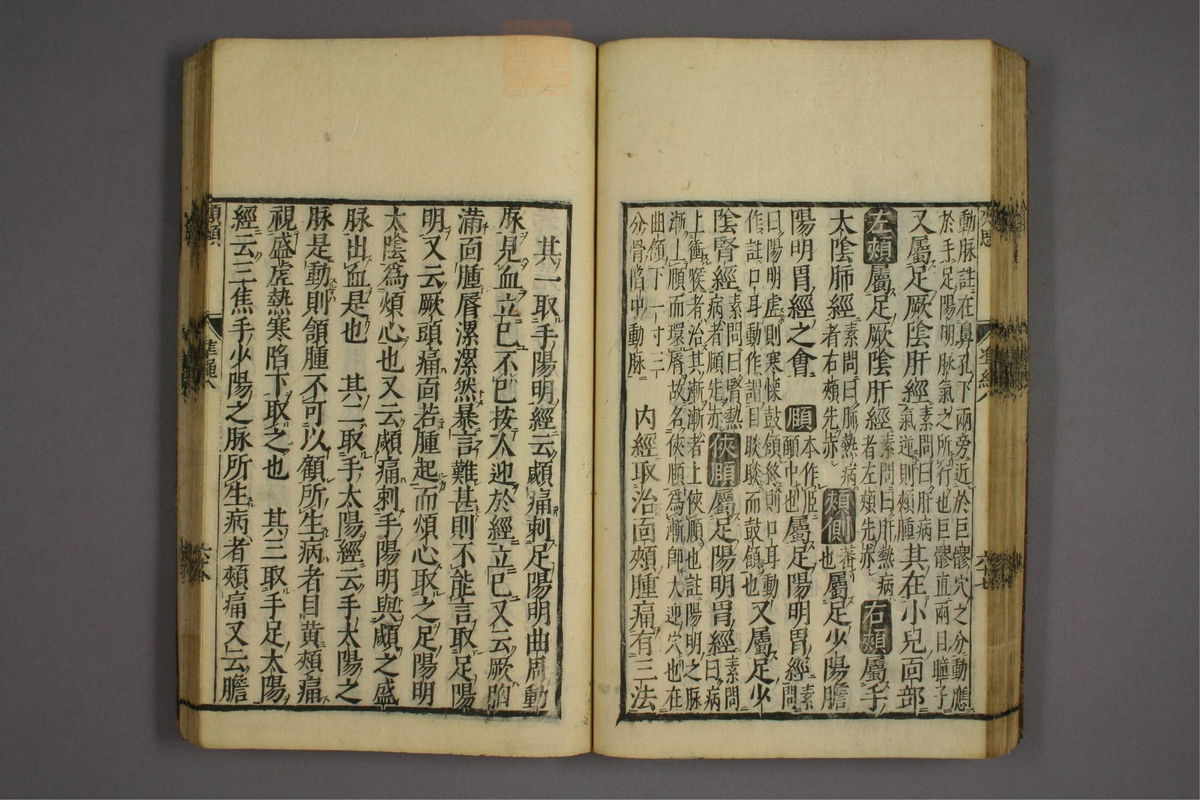 動脉註在鼻孔下兩旁近於巨髎穴之分動應
於手足陽明脉氣之所行也巨髎直兩目瞳子
又屬足厥陰肝經素問曰肝病氣逆則頰腫其在小兒面部
左頰屬足厥陰肝經素問曰肝熱病者左頰先赤右頰屬手
太陰肺經素問曰肺熱病者右頰先赤頰側蕃也屬足少陽膽
陽明胃經之會頤本作𦣝頷中也屬足陽明胃經素問
曰陽明虛則寒慄鼓頷註口耳動
作註口耳動作謂目睒睒而鼓頷也又屬足少
陰腎經素問曰腎熱病者頤先赤俠頤屬足陽明胃經素問曰病
上衝喉者治其漸漸者上俠頤也註陽明之脉
漸上頤而環唇故名俠頤爲漸即大迎穴也在
曲頷下一寸三分骨陷中動脉
内經取治面頰腫痛有三法
其一取手陽明經云顑痛刺足陽明曲周動
脉見血立已不已按人迎於經立已又云厥胸
滿面腫唇漯漯然暴言難甚則不能言取足陽
明又云厥頭痛面若腫起而煩心取之足陽明
太陰爲煩心也又云顑痛刺手陽明與顑之盛
脉出血是也 其二取手太陽經云手太陽之
脉是動則頷腫不可以顧所生病者目黃頰痛
視盛虛熱寒陷下取之也 其三取手足太陽
經云三焦手少陽之脉所生病者頰痛又云膽
準繩八